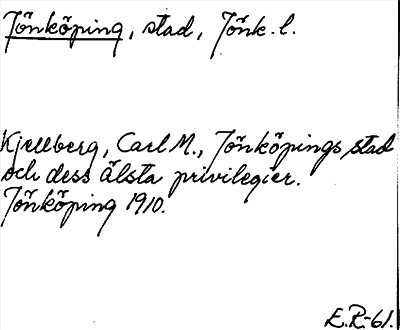 Jönköping, stad, Jönk. l.
Kjellberg, Carl M., Jönköpings stad
och dess älsta privilegier.
Jönköping 1910.
E.R-61.